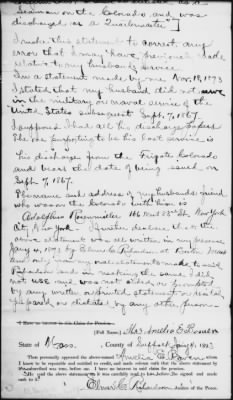 Seaman on the Colorado and was
discharged as a Quartermaster"]
I make this statement to correct any
error that I may have previously made
relative to my husband's service.
In a statement made by me Nov. 18, 1893
I stated that my husband did not serve
in the military or naval service of the
United States subsequent Sept. 7, 1867.
I supposed I had all his discharge papers
The one purporting to be his last service is
his discharge from the Frigate Colorado
and bears the date of being issued on
Sept. 7, 1867.
The name and address of my husband's friend
who was on the Colorado with him is
Adolphus 166 West 23rd St. New York
City, New York. I further declare that the
above statement was all written in my presence
Jany 4, 1893, by Richardson at Boston Mass
and only from my oral statements made to said
Richardson and in making the same I did
not use and was not aided or prompted
by any written or printed statement or recital
prepared or dictated by any other person.
I have no interest in this Claim for Pension.
[Full Name.] Mrs. Amelia E.
State of Mass., County of Suffolk Jany 4, 1893
Then personally appeared the above-named Amelia E.
whom I know to be reputable and entitled to credit, and made solemn oath that the above statement by
subscribed was true, before me. I have no interest in said claim for Pension.
And the above statement was carefully read to before signed and made
oath to it.
Richardson, Justice of the Peace.